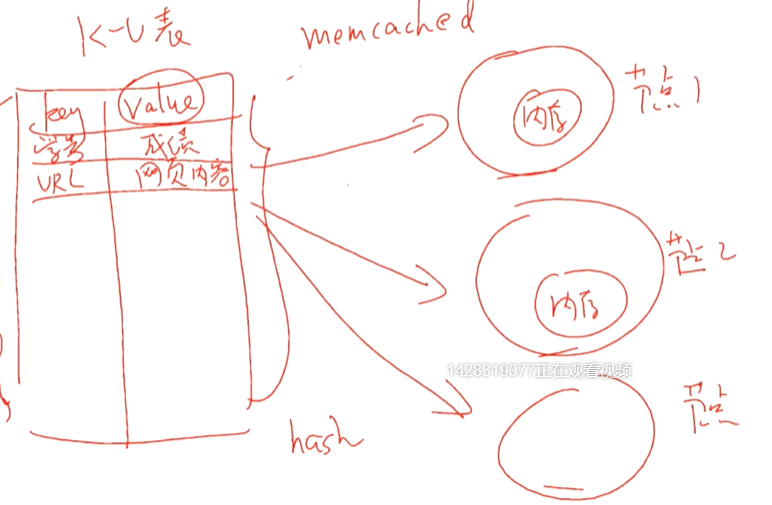 K-V表
memcached
key value
学号 成绩
URL 网页内容
hash
节点1
内存
节点2
内存
1428319077正在观看视频
节点